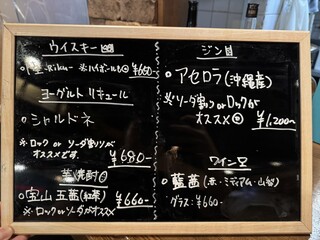 ウイスキー
陸-Riku- ※ハイボールも ¥660-
ヨーグルトリキュール
○シャルドネ
※ロック or ソーダ割りが
オススメです。
¥680-
芋焼酎
○宝山 五蕎(紅茶) ¥660-
※ロックorソーダがオススメ
ジン
○アセロラ(沖縄産)
※ソーダ割りorロックが
オススメ
¥1,200-
ワイン
○藍茜(赤・ミディアム・山梨)
グラス:¥660-